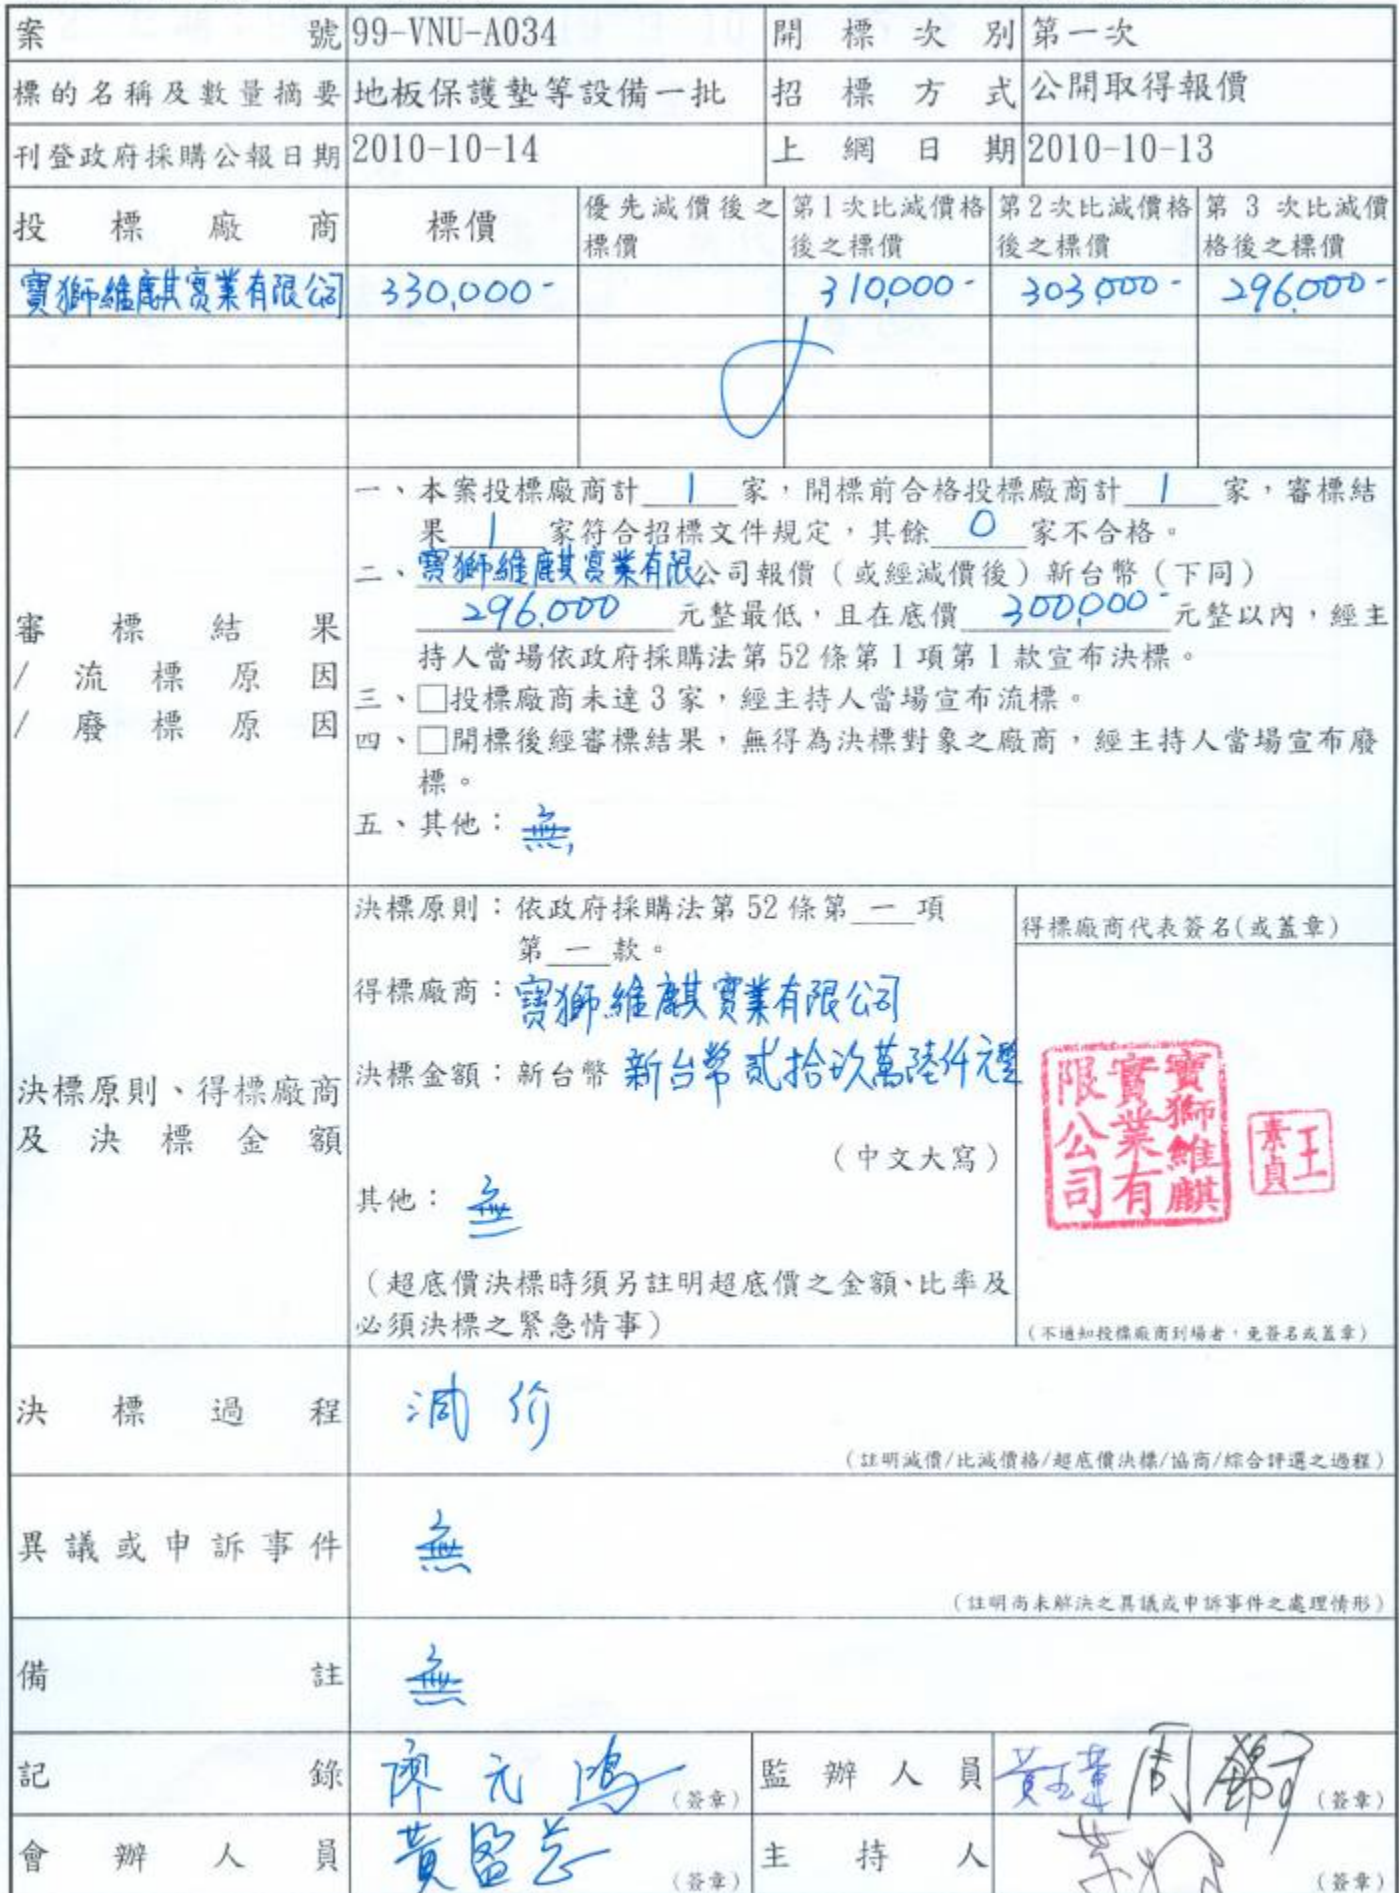 案號 99-VNU-A034 開標次別 第一次
標的名稱及數量摘要 地板保護墊等設備一批 招標方式 公開取得報價
刊登政府採購公報日期 2010-10-14 上網日期 2010-10-13
投標廠商 標價 優先減價後之標價 第1次比減價格後之標價 第2次比減價格後之標價 第3次比減價格後之標價
寶獅維麒實業有限公司 330,000- 310,000- 303,000- 296,000-
審標結果
/流標原因
/廢標原因
一、本案投標廠商計 1 家，開標前合格投標廠商計 1 家，審標結
果 1 家符合招標文件規定，其餘 0 家不合格。
二、寶獅維麒實業有限公司報價（或經減價後）新台幣（下同）
296,000 元整最低，且在底價 300,000- 元整以內，經主
持人當場依政府採購法第52條第1項第1款宣布決標。
三、□投標廠商未達3家，經主持人當場宣布流標。
四、□開標後經審標結果，無得為決標對象之廠商，經主持人當場宣布廢
標。
五、其他：無
決標原則、得標廠商
及決標金額
決標原則：依政府採購法第52條第一項
第一款。
得標廠商：寶獅維麒實業有限公司
決標金額：新台幣 新台幣貳拾玖萬陸仟元整
（中文大寫）
其他：無
（超底價決標時須另註明超底價之金額、比率及
必須決標之緊急情事）
得標廠商代表簽名(或蓋章)
寶獅維麒
實業有
限公司
王
素貞
（不通知投標廠商到場者，免簽名或蓋章）
決標過程 減价
（註明減價/比減價格/超底價決標/協商/綜合評選之過程）
異議或申訴事件 無
（註明尚未解決之異議或申訴事件之處理情形）
備註 無
記錄 廖元鴻 （簽章） 監辦人員 （簽章）
會辦人員 （簽章） 主持人 （簽章）